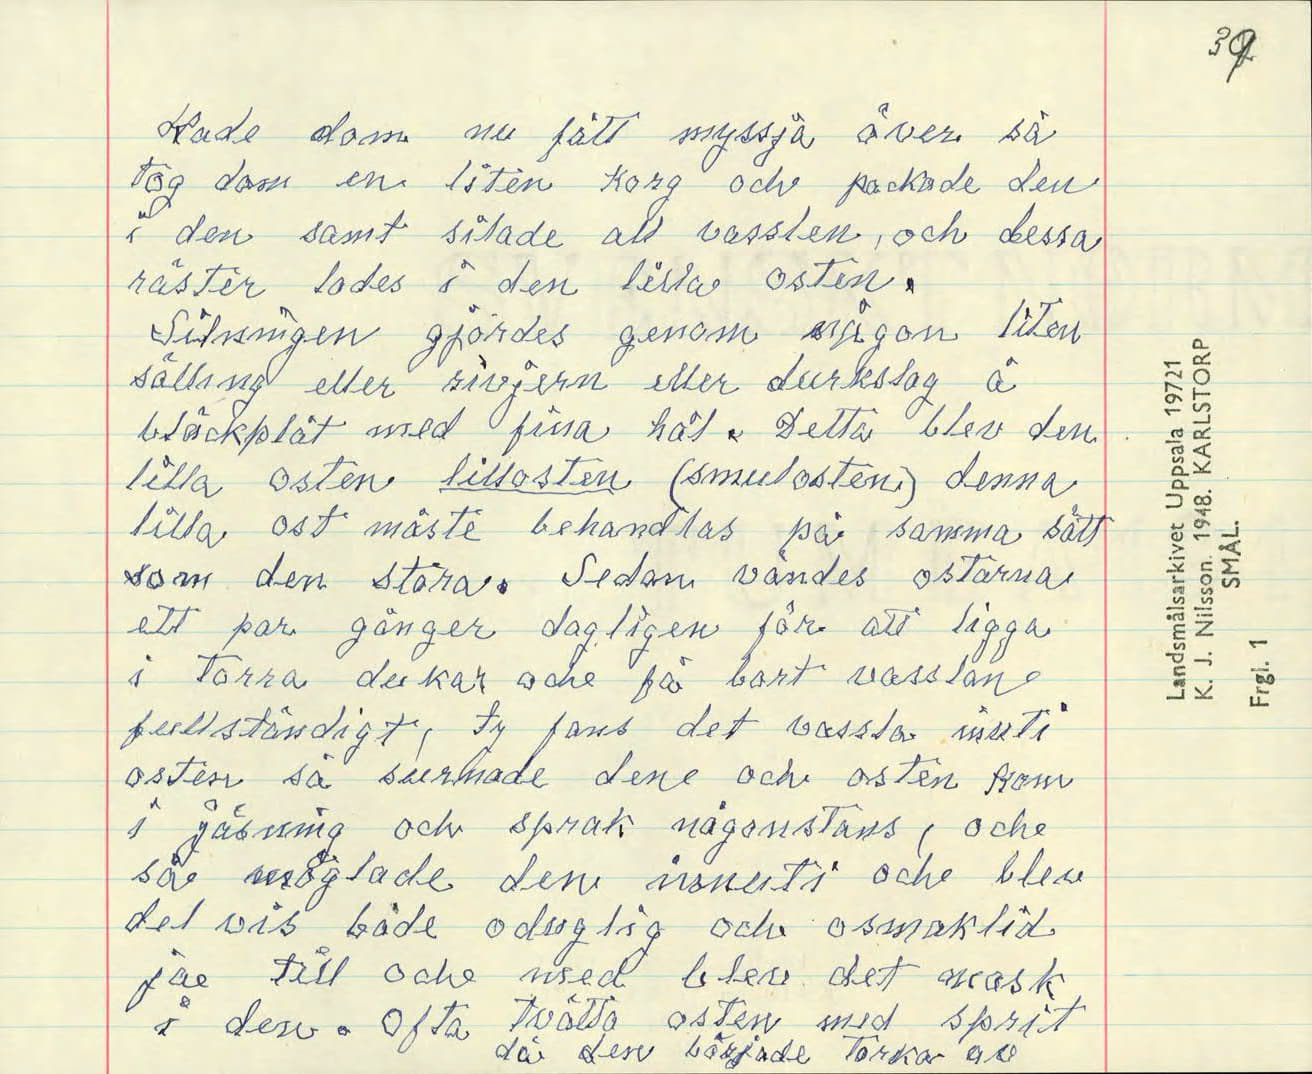 39
Hade dom nu fått myssjå över så
tog dom en liten korg och packade den
i den samt silade all vasslen, och dessa
räster lades i den lilla osten.
Silningen gjordes genom någon liten
sålling eller rivjern eller durkslag å
bläckplåt med fina hål. Detta blev den
lilla osten lillosten (smulosten) denna
lilla ost måste behandlas på samma sätt
som den stora. Sedan vändes ostarna
ett par gånger dagligen för att ligga
i torra dukar och få bort vasslan
fullständigt, ty fans det vassla inuti
osten så surnade den och osten kom
i jäsning och sprak någonstans, och
så möglade den innuti och blev
delvis både oduglig och osmaklid
ja till och med blev det mask
i den. Ofta tvätta osten med sprit
då den började torka av
Landsmålsarkivet Uppsala 19721
K. J. Nilsson. 1948. KARLSTORP
SMÅL.
Frgl. 1